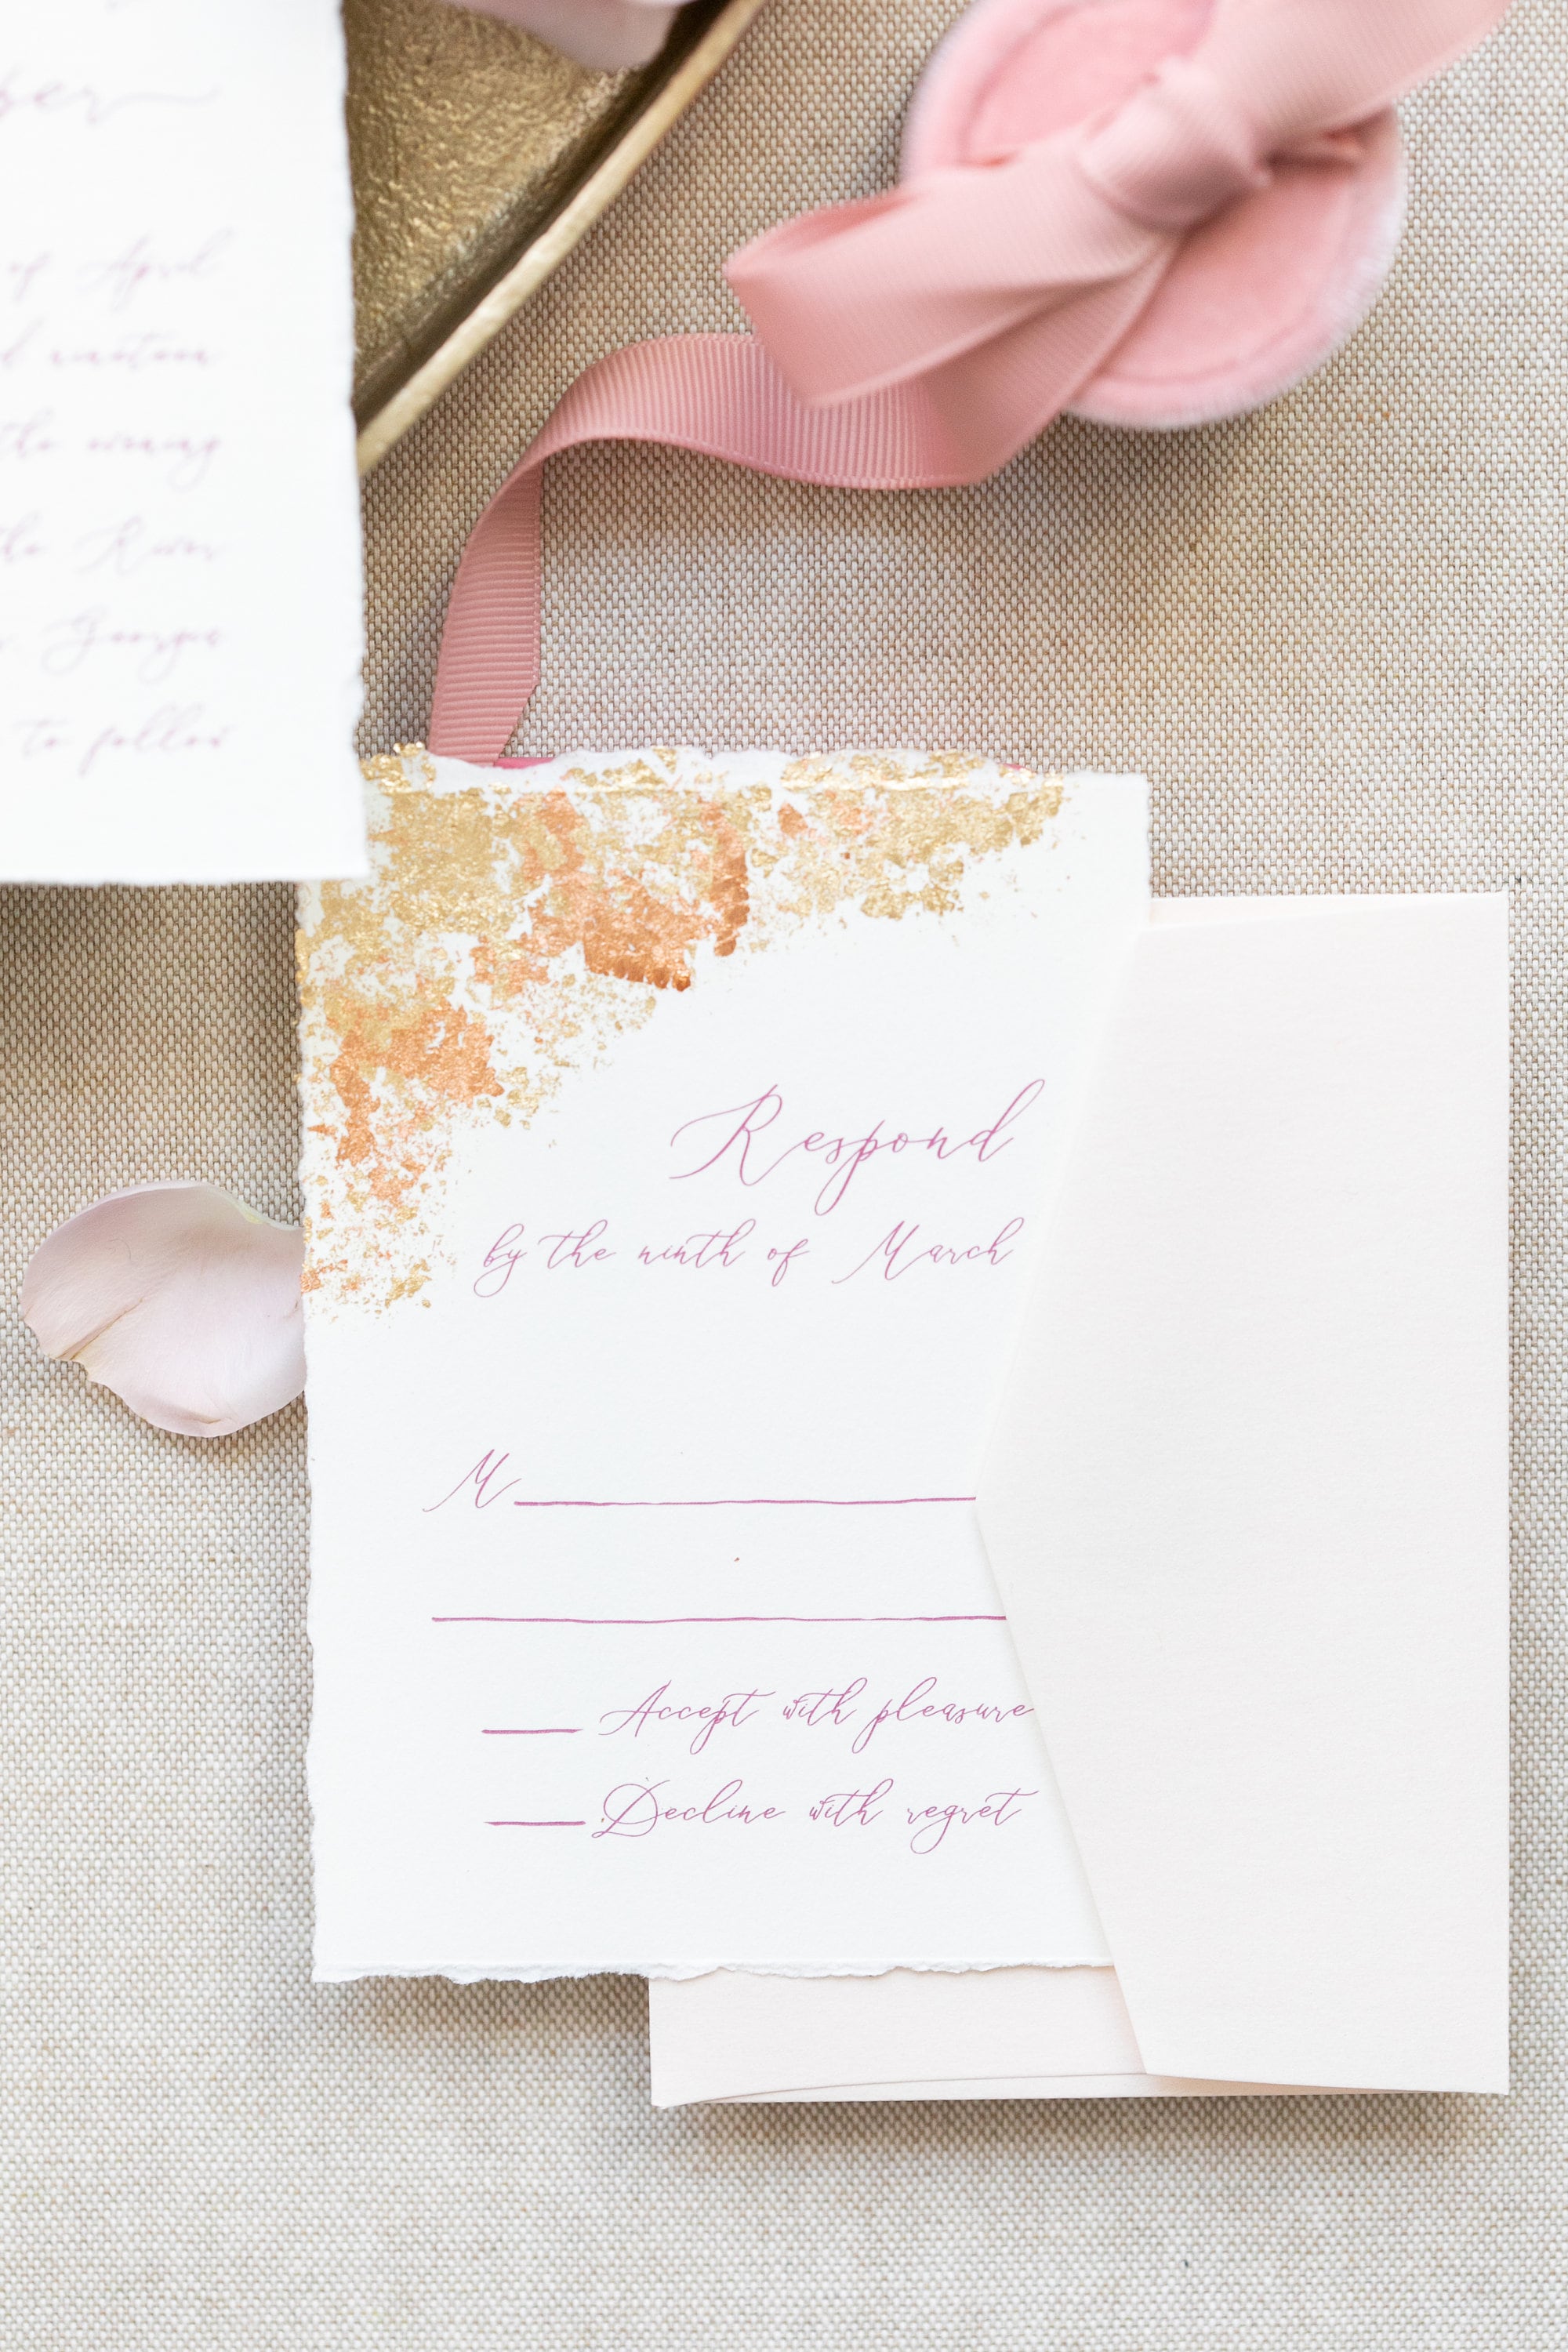 of April
nineteen
the evening
the River
Georgia
to follow
Respond
by the ninth of March
M
Accept with pleasure
Decline with regret